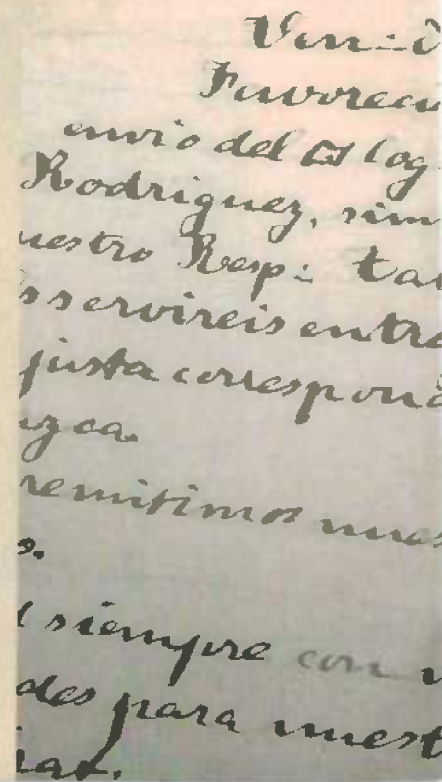 Ven∴ 
Favorec
envio del log
Rodriguez, sim
uestro Resp∴ Tal
s servireis entre
justa correspond
uzca.
remitimos nues
s.
siempre con
des para nuest